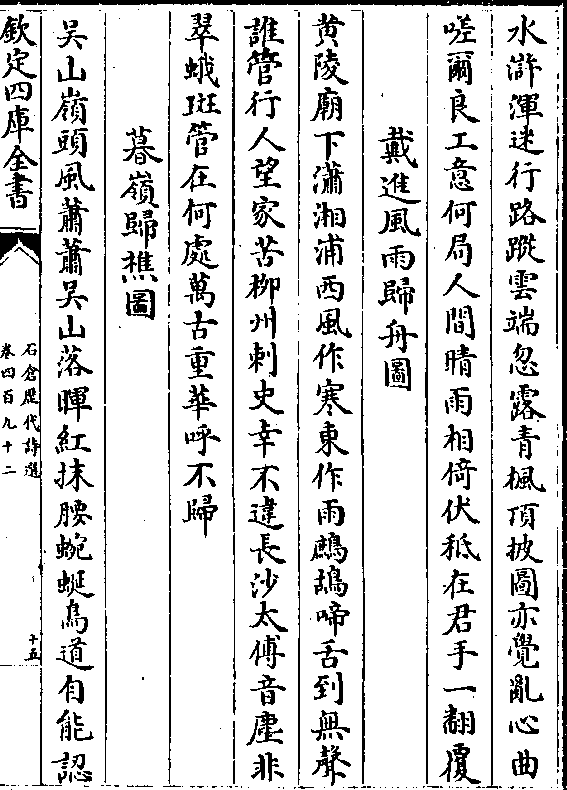 水滸渾迷行路蹤雲端忽露青楓頂披圖亦覺亂心曲
嗟爾良工意何局人間晴雨相倚伏秪在君手一翻覆
戴進風雨歸舟圖
黄陵廟下瀟湘浦西風作寒東作雨鷓鴣啼舌到無聲
誰管行人望家苦柳州刺史幸不違長沙太傅音塵非
翠蛾斑管在何處萬古重華呼不歸
暮嶺歸樵圖
吴山嶺頭風蕭蕭吴山落暉紅抹腰蜿蜒鳥道自能認
欽定四庫全書
石倉歷代詩選
卷四百九十二
十五